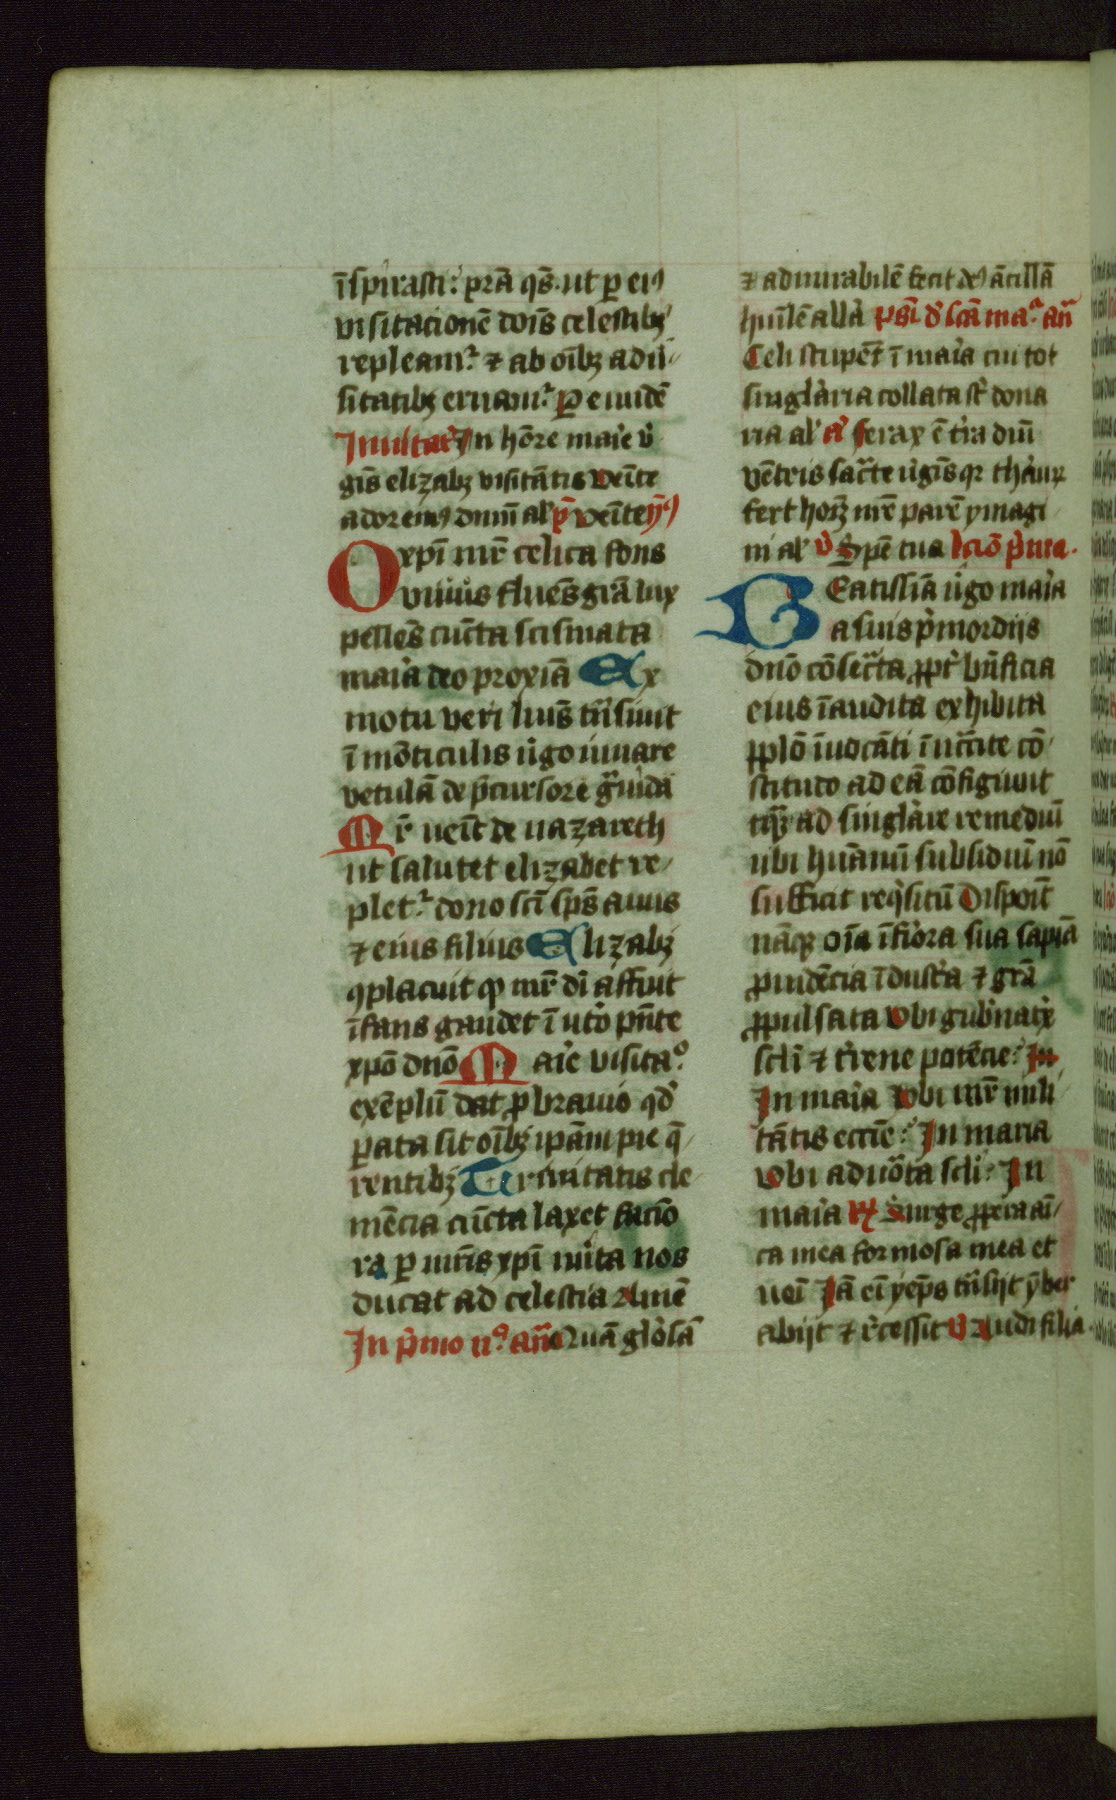 īspirasti: pr̄a q̄s. ut p eiꝰ
visitacionē doīs celestibꝫ
repleam̄ᷣ ⁊ ab oībꝫ adū
sitatibꝫ eruam̄ᷣ P eiudē
Inuitat̓ In hōre marie v̓
gīs elizabꝫ visitātis veīte
adoremꝰ dnm̄ al' p̄s Veīte ȳꝰ
O xp̄i mr̄ celica fons
viuus fluēs gr̄a lux
pellēs cūcta scismata
maria deo proxīa Ex
motu veri luīs trāsiuit
ī mōticulis v̓go iuuare
vetulā de p̄cursore g̓uidā
Mr̄ ueīt de nazareth
ut salutet elizabet re
pletᷣ dono sc̄i sp̄s auus
⁊ eius filius Elizabꝫ
ꝯplacuit ꝙ mr̄ di affuit
īfans gaudet ī utō pn̄te
xp̄o dn̄o Marie visita°
exēplū dat p brauio qd̓
pata sit oībꝫ ipām pie q̄
rentibꝫ Trinitatis cle
mēcia cūcta laxet facīo
ra p mr̄is xp̄i mīta nos
ducat ad celestia Amē
In p̓mo n° an̄ Quā gl̓osā
⁊ admirabilē fecit deꝰ ācillā
huīlē allā ps̄i d̓ sc̄a maᷣ an̄
Celi stupēt ī maria cui tot
singlaria collata st̄ dona
ria al' a' ferax ē tr̓a diuī
vētris sacᷓte v̓gīs qᷓ thaur
fert hoīꝫ nr̄e parē ymagi
ni al' v̓ Spē tua lcīo p̓ma.
BEatissīa v̓go maria
a suis p̓mordijs
dn̄o cōsecᷓta, ꝓpt̓ bn̄ficia
eius īaudita exhibita
ꝓplō īuocāti īuccāte cō
stituto ad eā cōfigiunt
tāqᷓ ad singlare remediū
ubi huānū subsidiū nō
sufficit reqͥsitū Dispoīt
nāqꝫ oīa īfiora sua sapīa
prudēcia īdust̓a ⁊ grā
ꝓpulsata Vbi gub̓nat̓x
scl̄i ⁊ tr̓ene potēcie: In
In maria Vbi mr̄ mili
tātis eccīe: In maria
Vbi aduōta scl̄i: In
maria R̸ Surge ꝓpera aī
ca mea formosa mea et
ueī Iā eī yēps trāsijt ȳber
abijt ⁊ r̓cessit V̓ Audi filia.